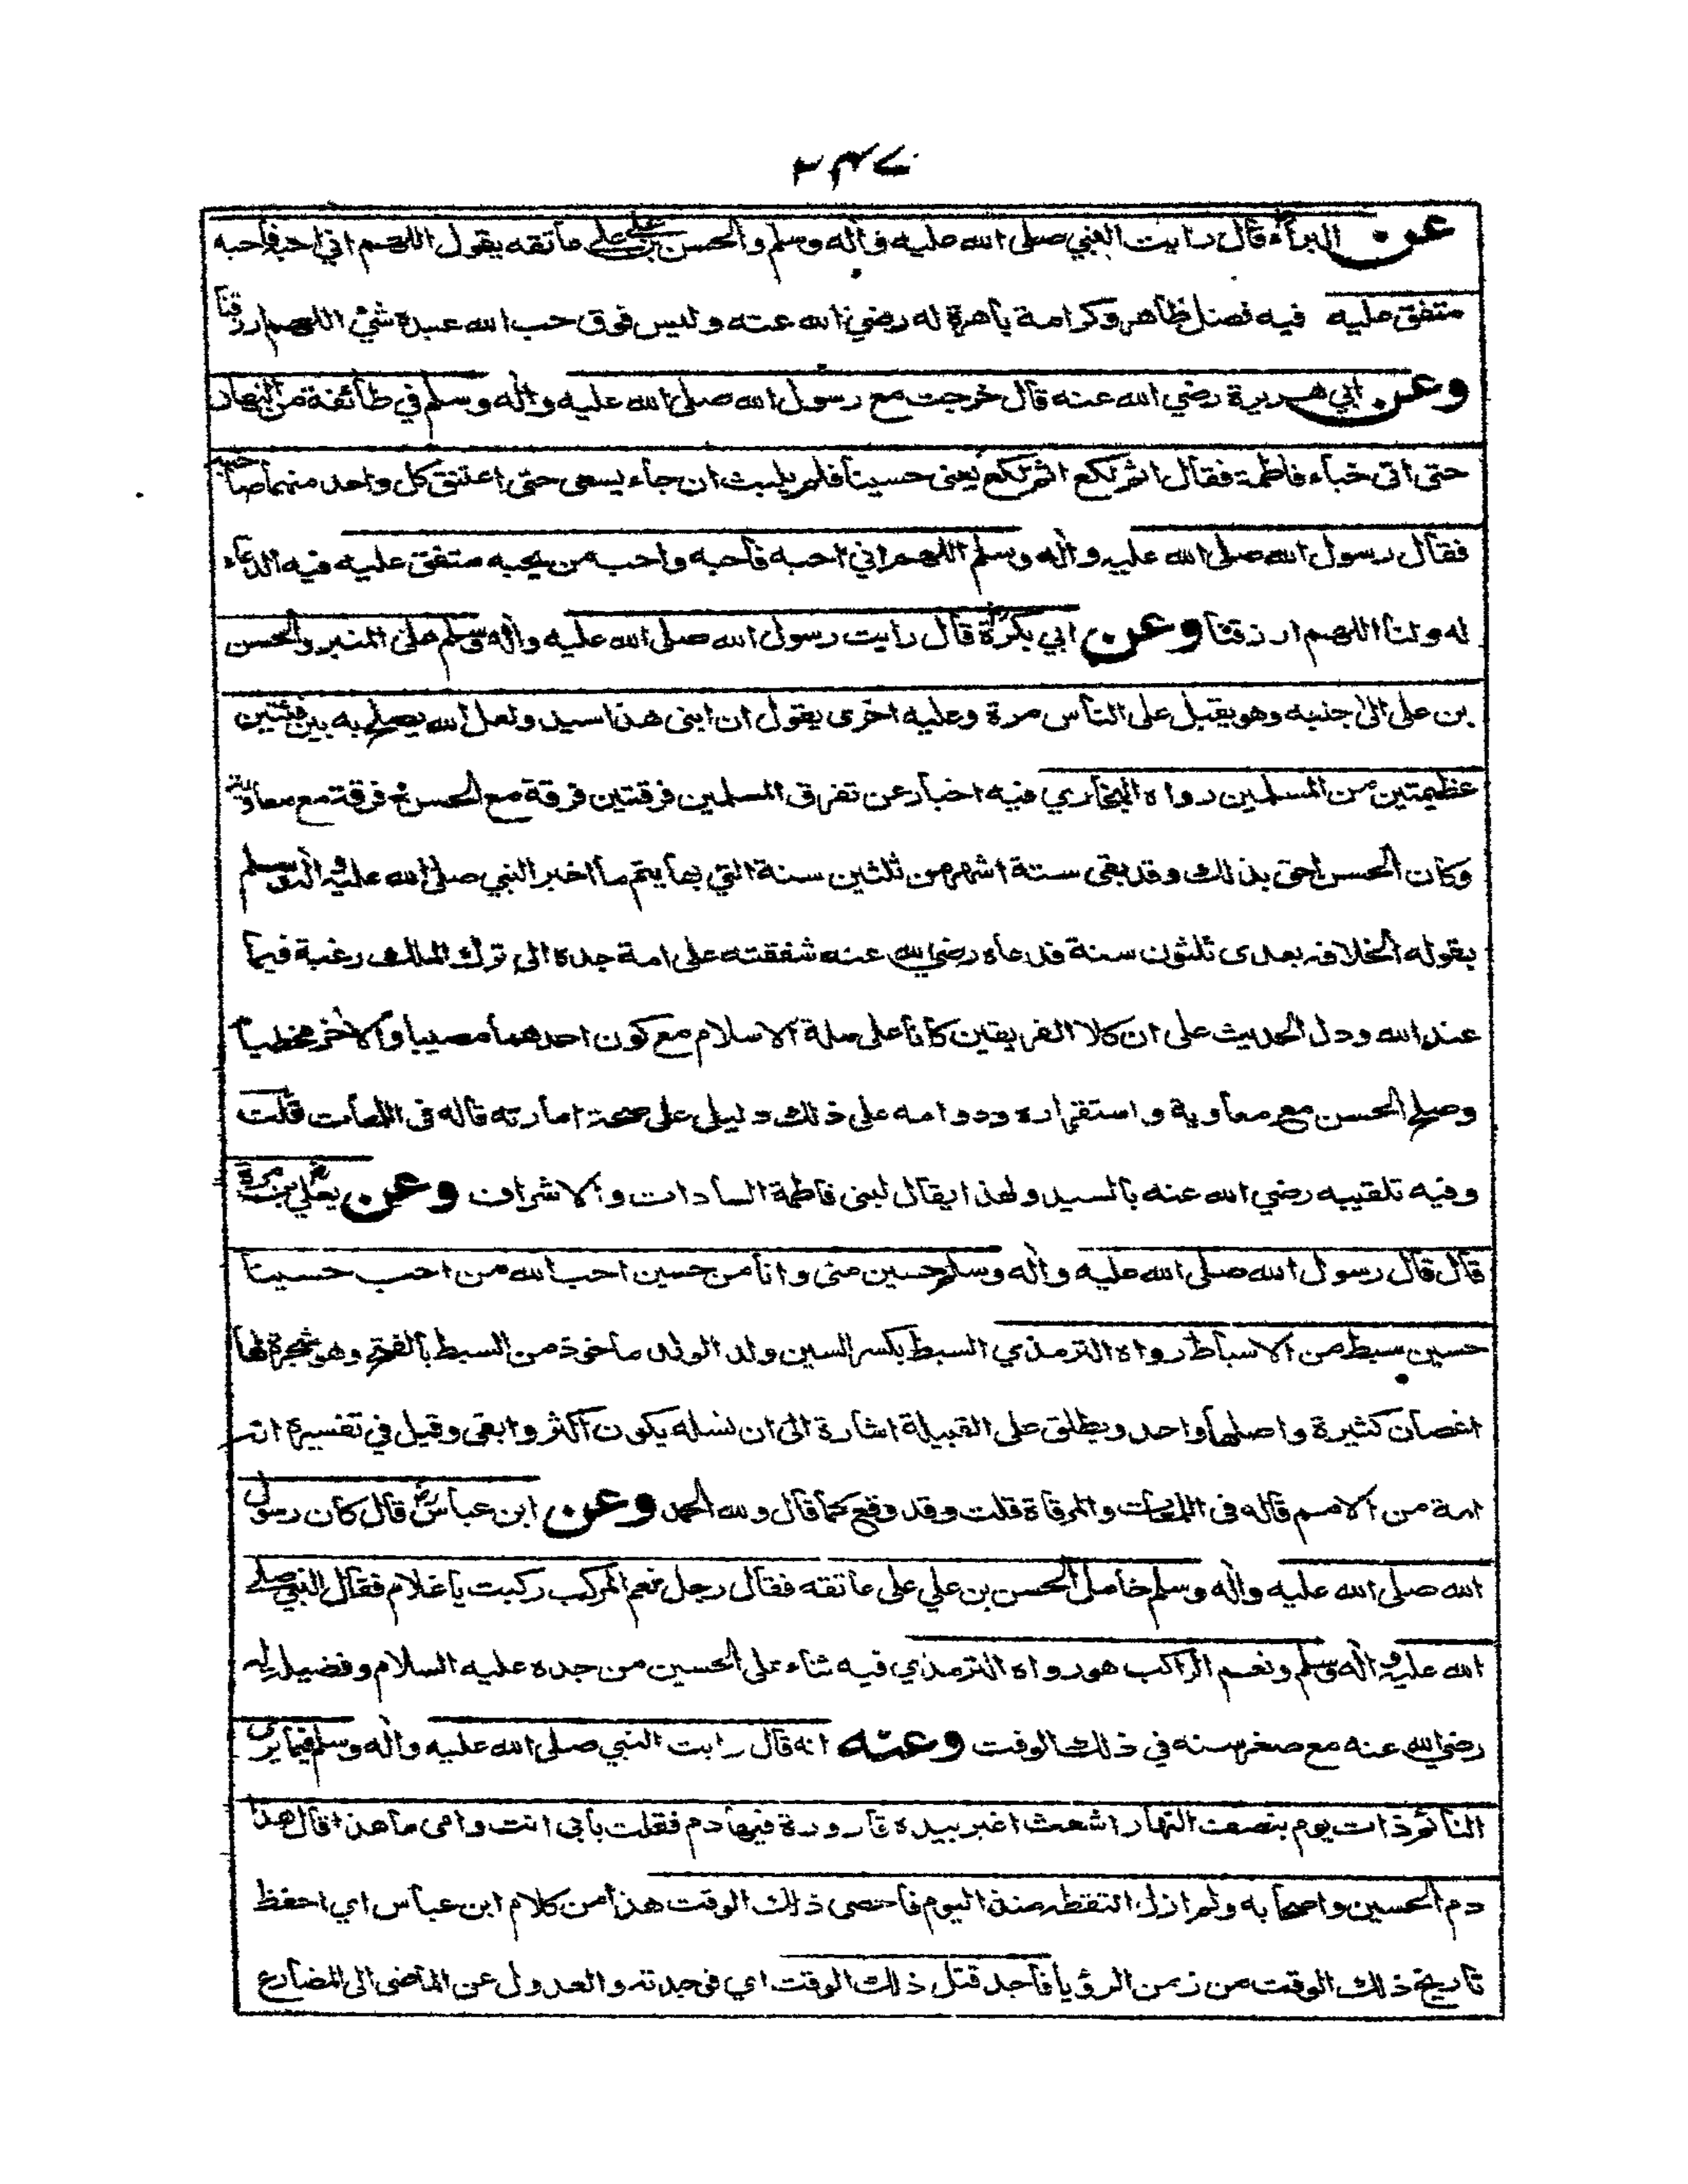 ٢٤٧
عن البراء قال رايت النبي صلى الله عليه واله وسلم والحسن بن علي على عاتقه يقول اللهم اني احبه فاحبه
متفق عليه فيه فضل ظاهر وكرامة باهرة له رضي الله عنه وليس فوق حب الله عبده شئ اللهم ارزقنا
وعن ابي هريرة رضي الله عنه قال خرجت مع رسول الله صلى الله عليه واله وسلم في طائفة من النهار
حتى اتى خباء فاطمة فقال اثم لكع اثم لكع يعنى حسينا فلم يلبث ان جاء يسعى حتى اعتنق كل واحد منهما صاحبه
فقال رسول الله صلى الله عليه واله وسلم اللهم اني احبه فاحبه واحب من يحبه متفق عليه فيه الدعاء
له ولنا اللهم ارزقنا وعن ابي بكرة قال رايت رسول الله صلى الله عليه واله وسلم على المنبر والحسن
بن على الى جنبه وهو يقبل على الناس مرة وعليه اخرى يقول ان ابنى هذا سيد ولعل الله يصلح به بين فئتين
عظيمتين من المسلمين رواه البخاري فيه اخبار عن تفرق المسلمين فرقتين فرقة مع الحسن رض فرقة مع معاوية
وكان الحسن احق بذلك وقد بقى ستة اشهر من ثلثين سنة التي بها يتم ما اخبر النبي صلى الله عليه واله وسلم
بقوله الخلافه بعدى ثلثون سنة فدعاه رضي الله عنه شفقته على امة جده الى ترك الملك رغبة فيما
عند الله ودل الحديث على ان كلا الفريقين كانا على ملة الاسلام مع كون احدهما مصيبا والاخر مخطيا
وصلح الحسن مع معاوية واستقراره ودوامه على ذلك دليل على صحة امارته قاله فى اللمعات قلت
وفيه تلقيبه رضي الله عنه بالسيد ولهذا يقال لبنى فاطمة السادات والاشراف وعن يعلي بن مرة
قال قال رسول الله صلى الله عليه واله وسلم حسين منى وانا من حسين احب الله من احب حسينا
حسين سبط من الاسباط رواه الترمذي السبط بكسر السين ولد الولد ماخوذ من السبط بالفتح وهو شجرة لها
اغصان كثيرة واصلها واحد ويطلق على القبيلة اشارة الى ان نسله يكون اكثر وابقى وقيل في تفسيره انه
امة من الامم قاله فى اللمعات والمرقاة قلت وقد وقع كما قال ولله الحمد وعن ابن عباس رض قال كان رسول
الله صلى الله عليه واله وسلم حاملا الحسن بن علي على عاتقه فقال رجل نعم المركب ركبت يا غلام فقال النبي صلے
الله عليه واله وسلم ونعم الراكب هو رواه الترمذي فيه ثناء على الحسين من جده عليه السلام وفضيلة له
رضي الله عنه مع صغر سنه في ذلك الوقت وعنه انه قال رايت النبي صلى الله عليه واله وسلم فيما يرى
النائم ذات يوم بنصف النهار اشعث اغبر بيده قارورة فيها دم فقلت بابي انت وامى ما هذا قال هذا
دم الحسين واصحابه ولم ازل التقطه منذ اليوم فاحصى ذلك الوقت هذا من كلام ابن عباس اي احفظ
تاريخ ذلك الوقت من زمن الرؤيا فاجد قتل ذلك الوقت اي فوجدته والعدول عن الماضى الى المضارع